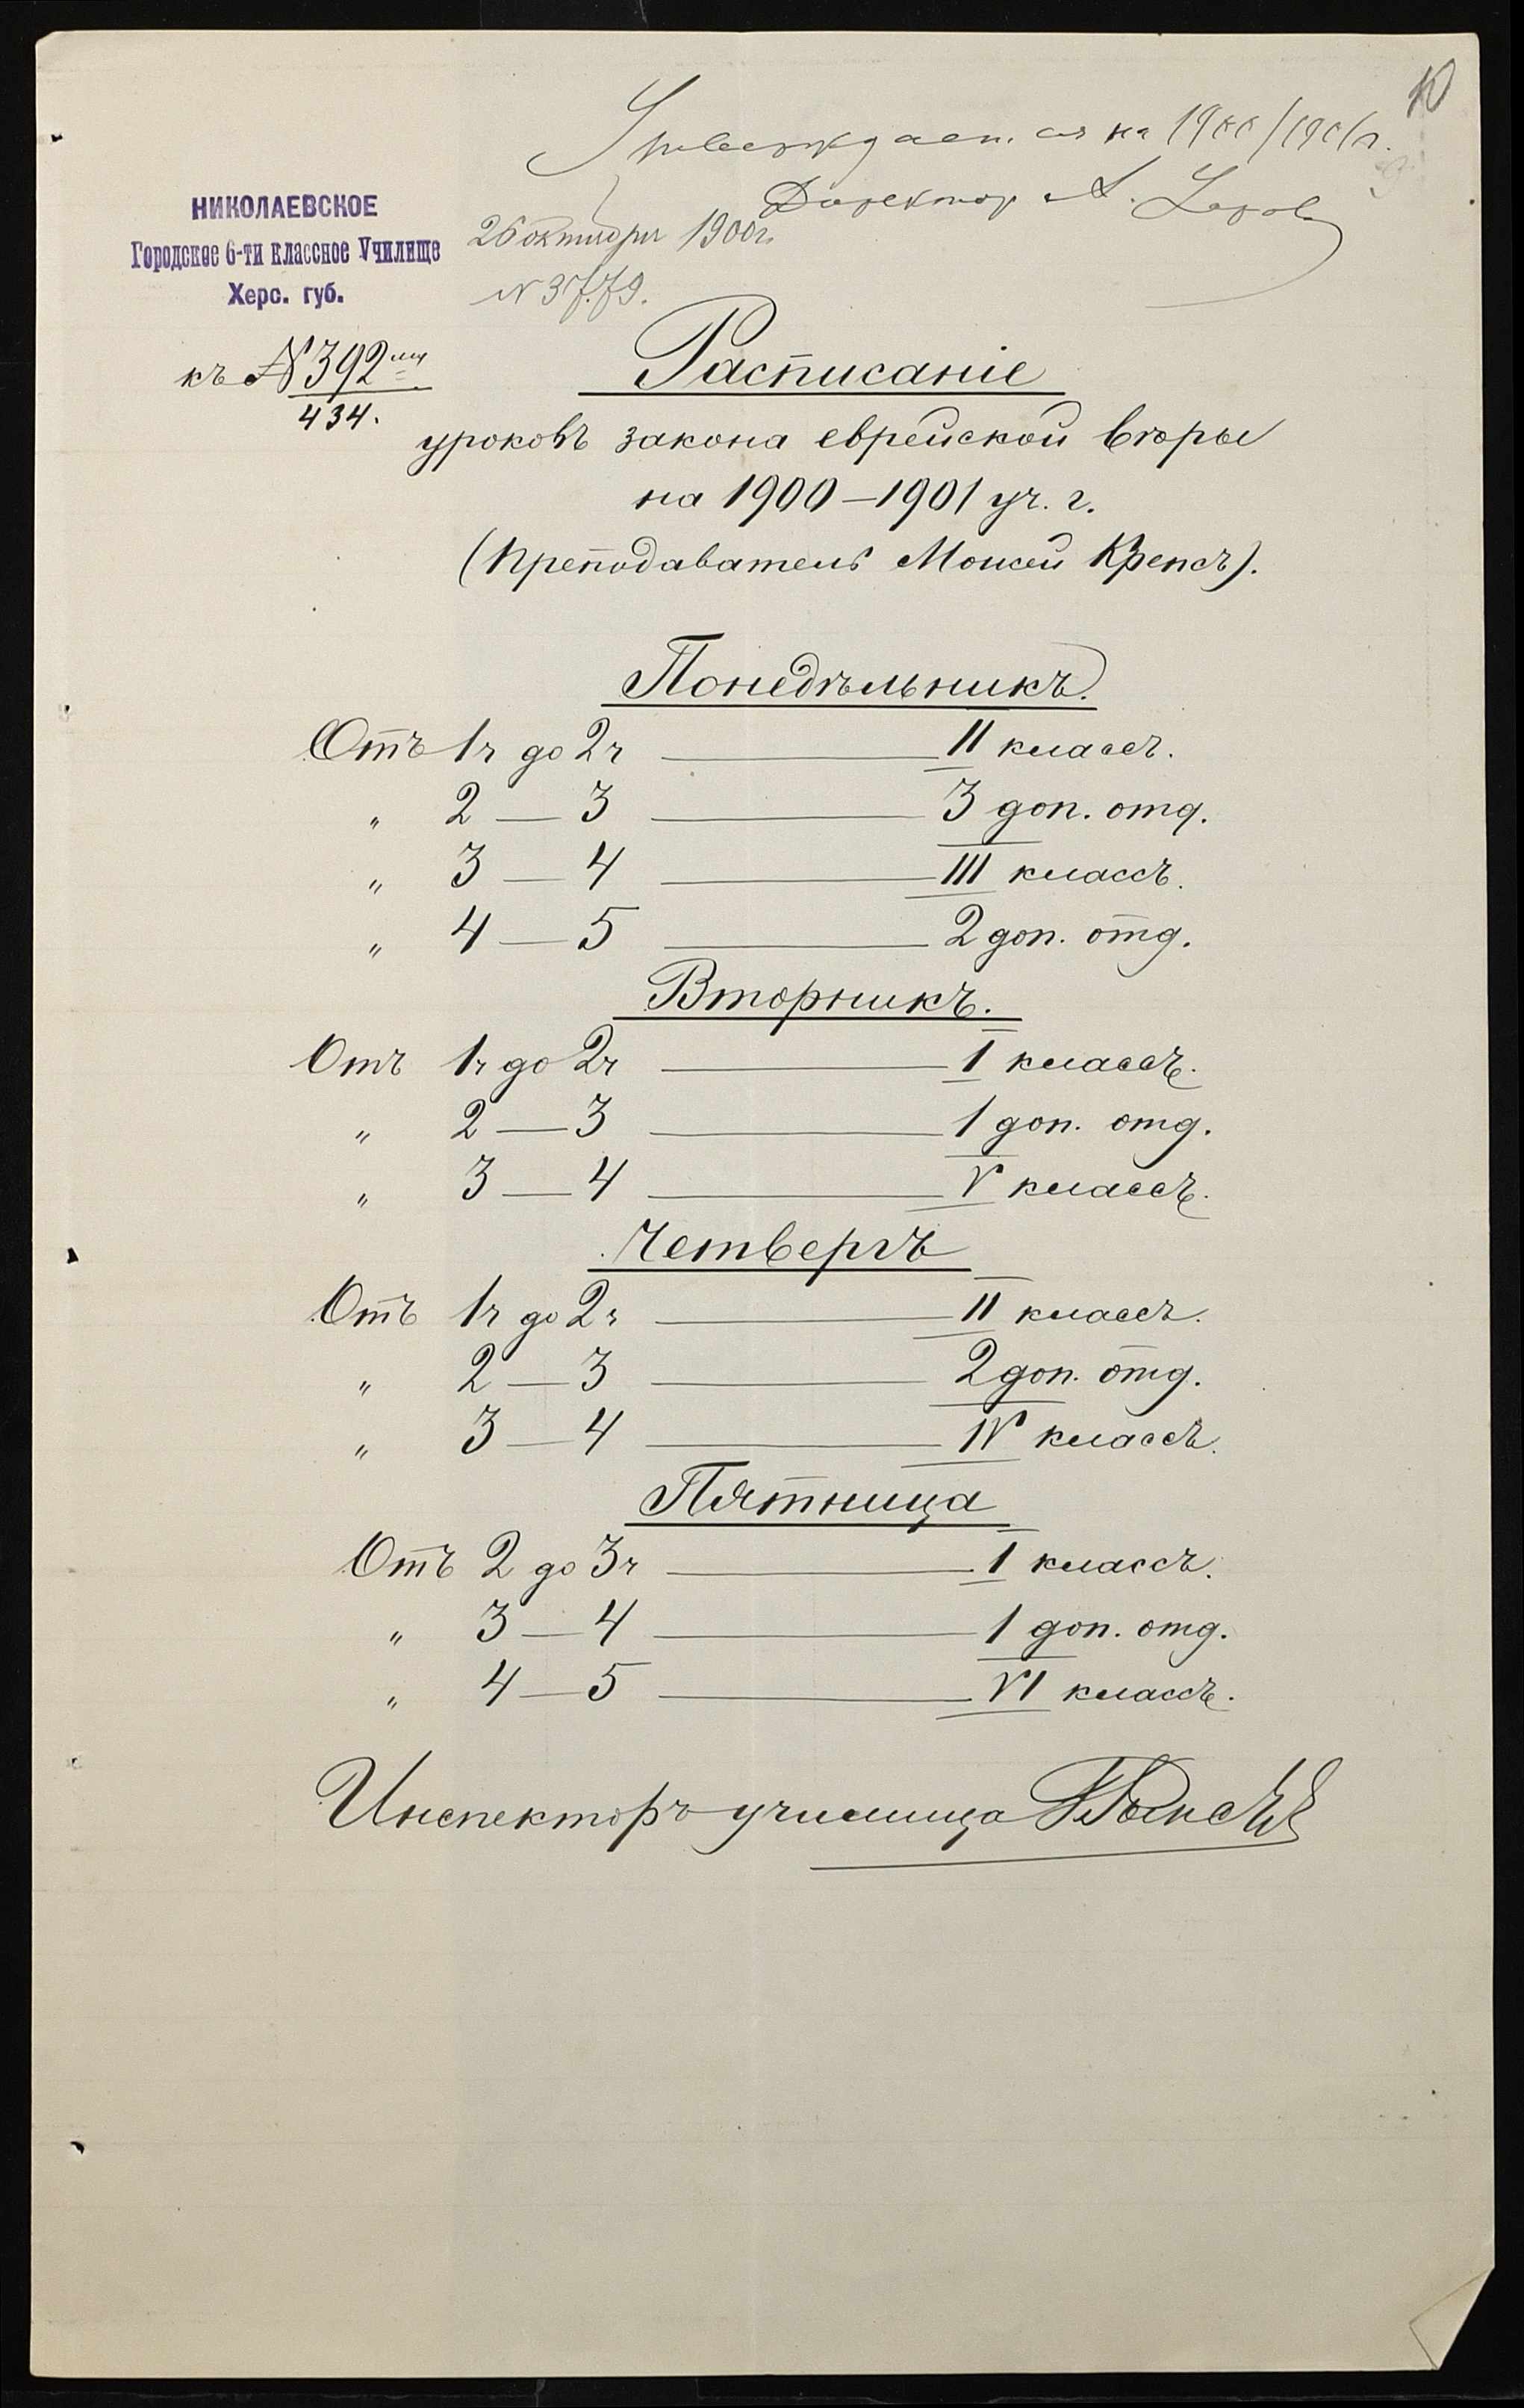 10
Утверждается на 1900/1901 г.
Директор А.
26 октября 1900 г.
№ 3779.
НИКОЛАЕВСКОЕ
Городское 6-ти классное Училище
Херс. губ.
къ № 392
434.
Расписаніе
уроковъ закона еврейской вѣры
на 1900—1901 уч. г.
(Преподаватель Моисей Крепсъ).
Понедѣльникъ.
Отъ 1ч до 2ч — II классъ.
" 2 — 3 — 3 доп. отд.
" 3 — 4 — III классъ.
" 4 — 5 — 2 доп. отд.
Вторникъ.
Отъ 1ч до 2ч — I классъ.
" 2 — 3 — 1 доп. отд.
" 3 — 4 — V классъ.
Четвергъ
Отъ 1ч до 2ч — II классъ.
" 2 — 3 — 2 доп. отд.
" 3 — 4 — IV классъ.
Пятница
Отъ 2 до 3ч — I классъ.
" 3 — 4 — 1 доп. отд.
" 4 — 5 — VI классъ.
Инспекторъ училища